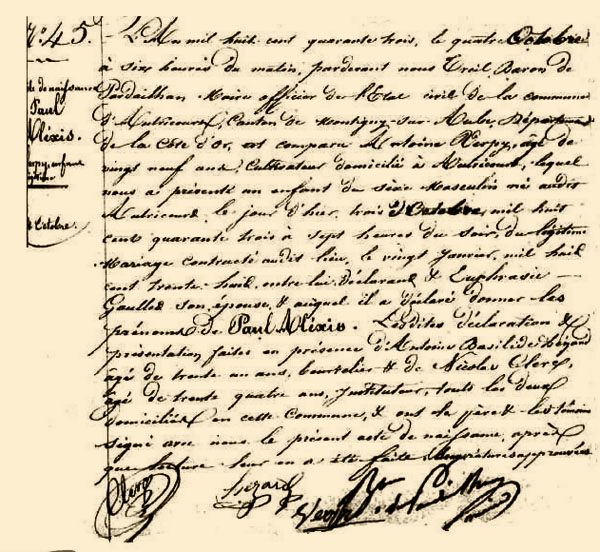 N.o 45.
te de naissance
Paul
Aléxis.
enfant
Octobre.
L'An mil huit cent quarante trois, le quatre Octobre
à six heures du matin, pardevant nous Treil, Baron de
Pardailhan Maire officier de l'Etat civil de la commune
d'Autricourt, Canton de Montigny-sur-Aube, Département
de la Côte d'Or, est comparu Antoine Verpy, âgé de
vingt neuf ans, Cultivateur domicilié à Autricourt, lequel
nous a présenté un enfant du sexe Masculin né audit
Autricourt, le jour d'hier, trois Octobre, mil huit
cent quarante trois à sept heures du soir, du légitime
Mariage contracté audit lieu, le vingt Janvier, mil huit
cent trente-huit, entre lui déclarant & Euphrasie
son épouse, & auquel il a déclaré donner les
prénoms de Paul Aléxis. Lesdites déclaration &
présentation faites en présence d'Antoine Basilide
âgé de trente un ans, bourrelier & de Nicolas Clerc,
âgé de trente quatre ans, Instituteur, tous les deux
domiciliés en cette Commune, & ont le père & les témoins
signé avec nous le présent acte de naissance, après
que lecture leur en a été faite approuvées
Clerc